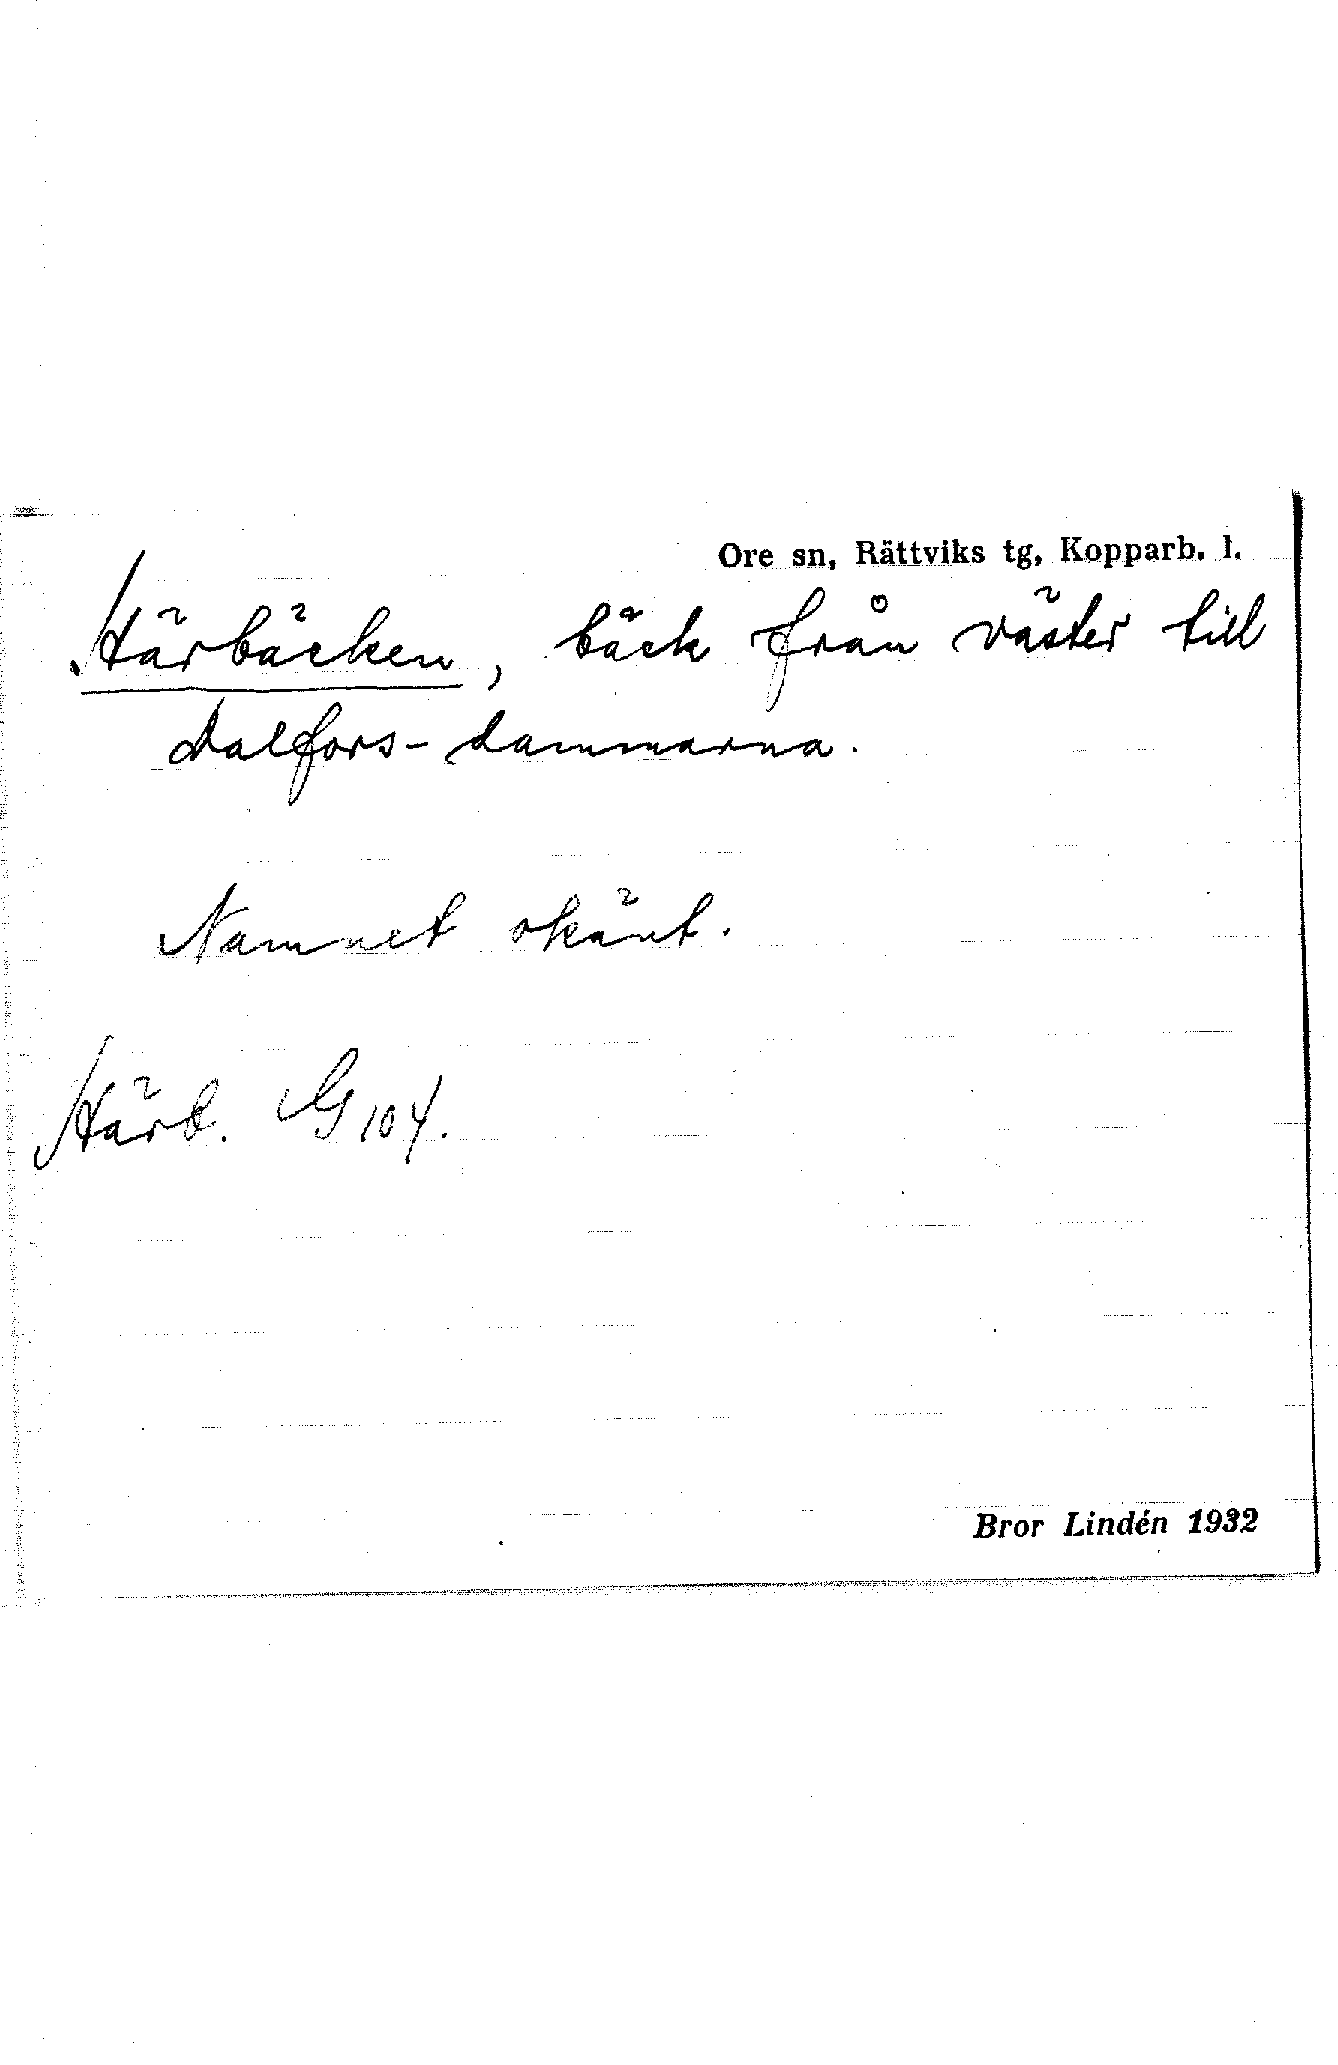 Ore sn, Rättviks tg, Kopparb. l.
Härbäcken, bäck från väster till
Dalfors-dammarna.
Namnet okänt.
Härb. G 104.
Bror Lindén 1932